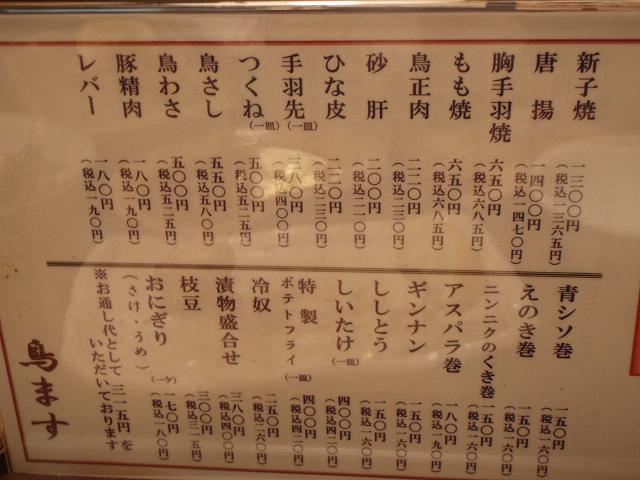 新子焼 一三〇〇円
（税込 一三六五円）
唐揚 一四〇〇円
（税込 一四七〇円）
胸手羽焼 六五〇円
（税込 六八五円）
もも焼 六五〇円
（税込 六八五円）
鳥正肉 二二〇円
（税込 二三〇円）
砂肝 二〇〇円
（税込 二一〇円）
ひな皮 二二〇円
（税込 二三〇円）
手羽先（一皿） 三八〇円
（税込 四〇〇円）
つくね（一皿） 五〇〇円
（税込 五二五円）
鳥さし 五五〇円
（税込 五八〇円）
鳥わさ 五〇〇円
（税込 五二五円）
豚精肉 一八〇円
（税込 一九〇円）
レバー 一八〇円
（税込 一九〇円）
青シソ巻 一五〇円
（税込 一六〇円）
えのき巻 一五〇円
（税込 一六〇円）
ニンニクのくき巻 一五〇円
（税込 一六〇円）
アスパラ巻 一八〇円
（税込 一九〇円）
ギンナン 一五〇円
（税込 一六〇円）
ししとう 一五〇円
（税込 一六〇円）
しいたけ（一皿） 四〇〇円
（税込 四二〇円）
特製
ポテトフライ（一皿） 四〇〇円
（税込 四二〇円）
冷奴 二五〇円
（税込 二六〇円）
漬物盛合せ 三八〇円
（税込 四〇〇円）
枝豆 三〇〇円
（税込 三一五円）
おにぎり（一ケ） 一七〇円
（さけ・うめ） （税込 一八〇円）
※お通し代として 三一五円 を
いただいております
鳥ます